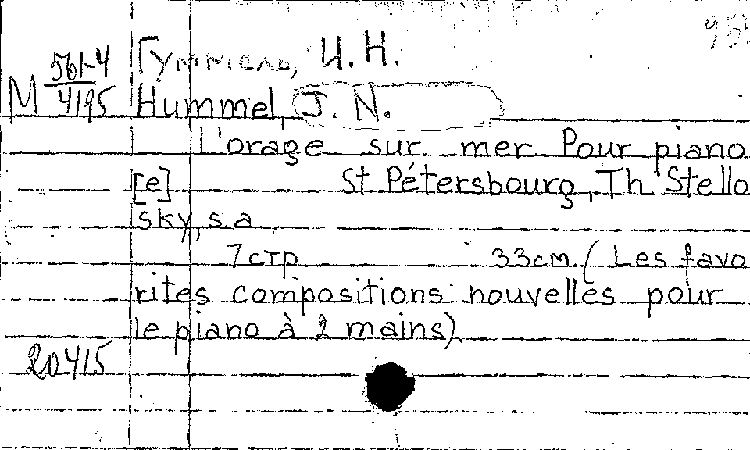 Гуммель, И. Н.
М 561-4
4195
Hummel, J. N.
L'orage sur mer Pour piano
[e] St Pétersbourg, Th Stello
sky, s.a
7 стр 33 см. (Les favo
rites compositions nouvelles pour
le piano à 2 mains)
20415